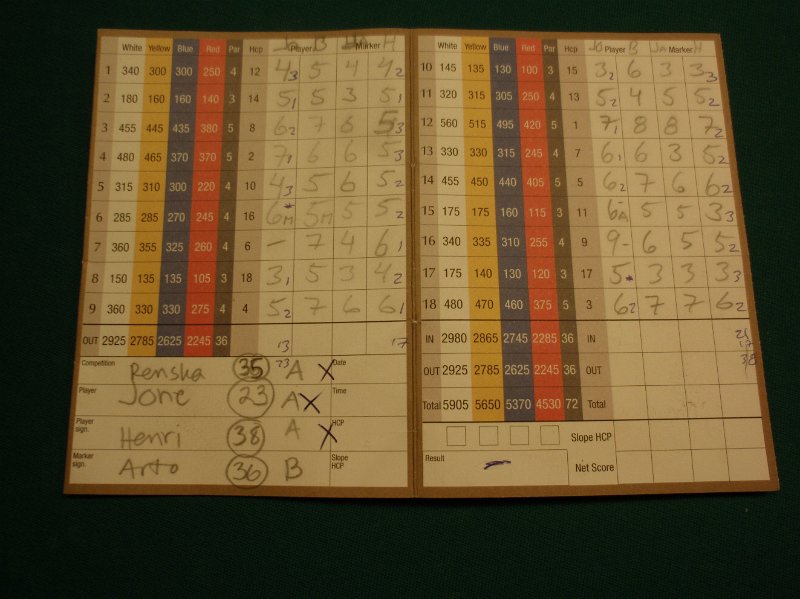 White Yellow Blue Red Par Hcp Player B Marker H
1 340 300 300 250 4 12 4 3 5 4 4 2
2 180 160 160 140 3 14 5 1 5 3 5 1
3 455 445 435 380 5 8 6 2 7 6 5 3
4 480 465 370 370 5 2 7 1 6 6 5 3
5 315 310 300 220 4 10 4 3 5 6 5 2
6 285 285 270 245 4 16 6M * 5M 5 5 2
7 360 355 325 260 4 6 - 7 4 6 1
8 150 135 135 105 3 18 3 1 5 3 4 2
9 360 330 330 275 4 4 5 2 7 6 6 1
OUT 2925 2785 2625 2245 36 13 17
Competition Renska 35 A X Date
23
Player Jone 23 A X Time
Player sign. Henri 38 A X HCP
Marker sign. Arto 36 B Slope HCP
White Yellow Blue Red Par Hcp Jo Player B Ja Marker H
10 145 135 130 100 3 15 3 2 6 3 3 3
11 320 315 305 250 4 13 5 2 4 5 5 2
12 560 515 495 420 5 1 7 1 8 8 7 2
13 330 330 315 245 4 7 6 1 6 3 5 2
14 455 450 440 405 5 5 6 2 7 6 6 2
15 175 175 160 115 3 11 6 A 5 5 3 3
16 340 335 310 255 4 9 9 - 6 5 5 2
17 175 140 130 120 3 17 5 * 3 3 3 3
18 480 470 460 375 5 3 6 2 7 7 6 2
IN 2980 2865 2745 2285 36 IN 21
17
OUT 2925 2785 2625 2245 36 OUT 38
Total 5905 5650 5370 4530 72 Total
Slope HCP
Result Net Score